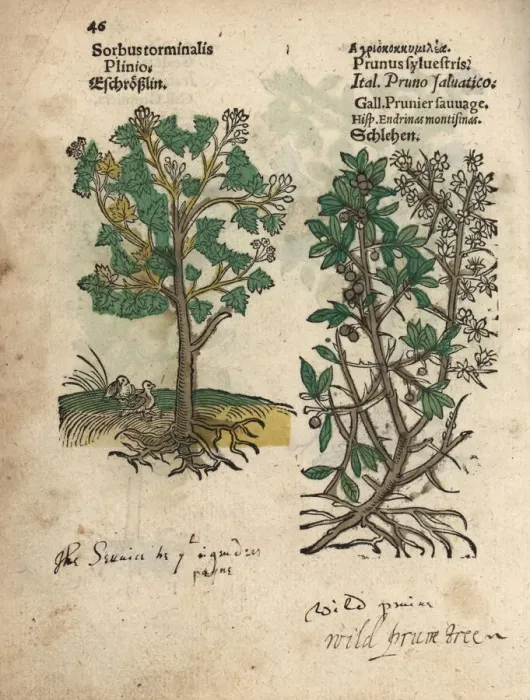 46
Sorbus torminalis
Plinio.
Eschrößlin.
Ἀγριοκοκκυμιλέα.
Prunus sylvestris.
Ital. Pruno saluatico.
Gall. Prunier sauuage.
Hisp. Endrinas montisinas.
Schlehen.
the Seruice
wild pruine
wild prune tree